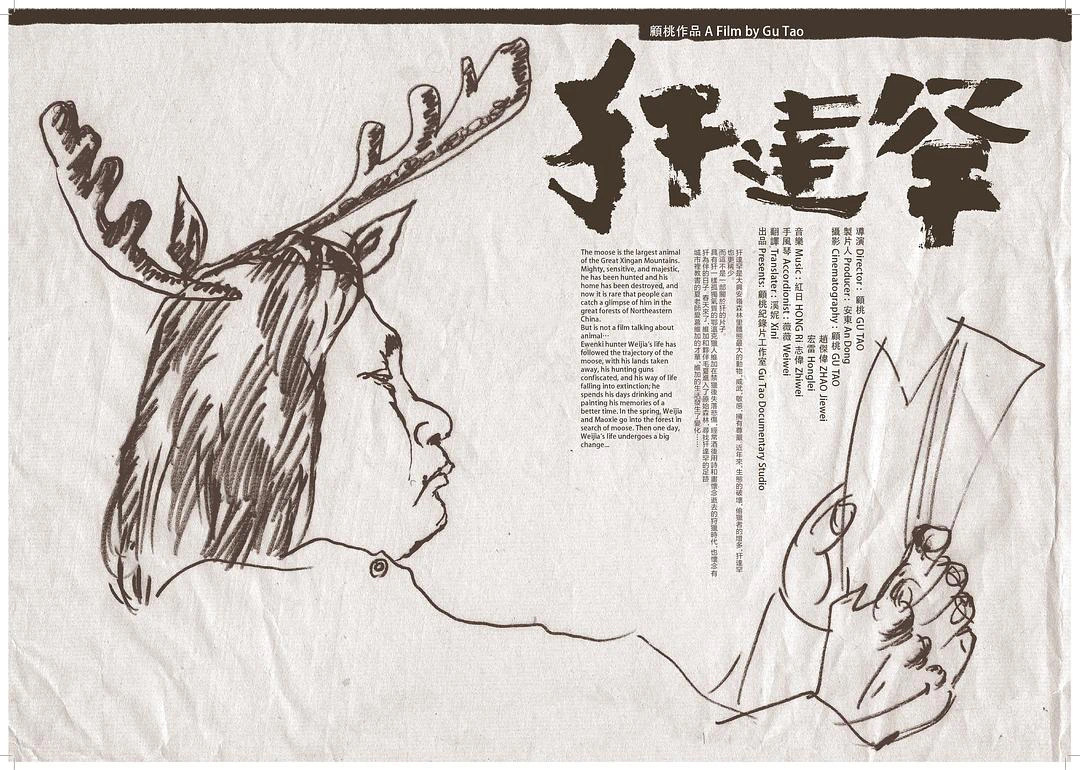 顧桃作品 A Film by Gu Tao
犴達罕
The moose is the largest animal
of the Great Xingan Mountains.
Mighty, sensitive, and majestic,
he has been hunted and his
home has been destroyed, and
now it is rare that people can
catch a glimpse of him in the
great forests of Northeastern
China.
But is not a film talking about
animal…
Ewenki hunter Weijia's life has
followed the trajectory of the
moose, with his lands taken
away, his hunting guns
confiscated, and his way of life
falling into extinction; he
spends his days drinking and
painting his memories of a
better time. In the spring, Weijia
and Maoxie go into the forest in
search of moose. Then one day,
Weijia's life undergoes a big
change...
導演 Director: 顧桃 GU TAO
製片人 Producer: 安東 An Dong
攝影 Cinematography: 顧桃 GU TAO
趙傑偉 ZHAO Jiewei
宏雷 Honglei
音樂 Music: 紅日 HONG RI 志偉 Zhiwei
手風琴 Accordionist: 薇薇 Weiwei
翻譯 Translater: 溪妮 Xini
出品 Presents: 顧桃紀錄片工作室 Gu Tao Documentary Studio
犴達罕是大興安嶺森林里體態最大的動物，威武、敏感、擁有尊嚴，近年來，生態的破壞、偷獵者的增多，犴達罕
也更稀少。
而這不是一部關於犴的片子。
具有犴一樣孤獨氣質的鄂溫克獵人維加在禁獵後失落悲傷，經常酒後用詩和畫懷念逝去的狩獵時代，也懷念有
犴為伴的日子。春天來了，維加和夥伴毛夏進入了原始森林，尋找犴達罕的足跡。
城市裡教書的夏老師愛慕維加的才華，維加的生活發生了變化……